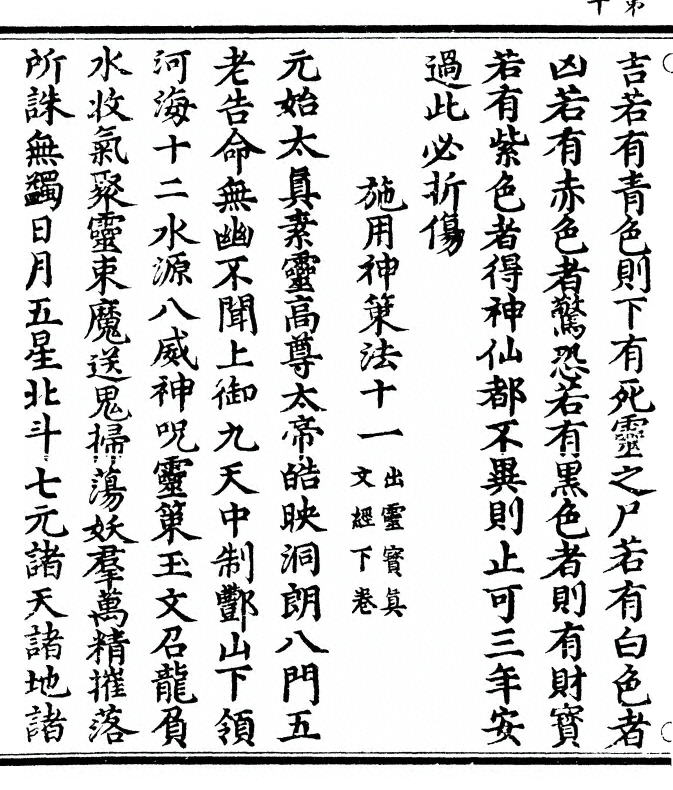 吉若有青色則下有死靈之尸若有白色者
凶若有赤色者驚恐若有黒色者則有財寳
若有紫色者得神仙都不異則止可三年安
過此必折傷
施用神筞法十一
出靈寳真
文經下卷
元始太真素靈高尊太帝皓映洞朗八門五
老告命無幽不聞上御九天中制酆山下領
河海十二水源八威神呪靈筞玉文召龍負
水收氣聚靈束魔送鬼掃蕩妖羣萬精摧落
所誅無蠲日月五星北斗七元諸天諸地諸